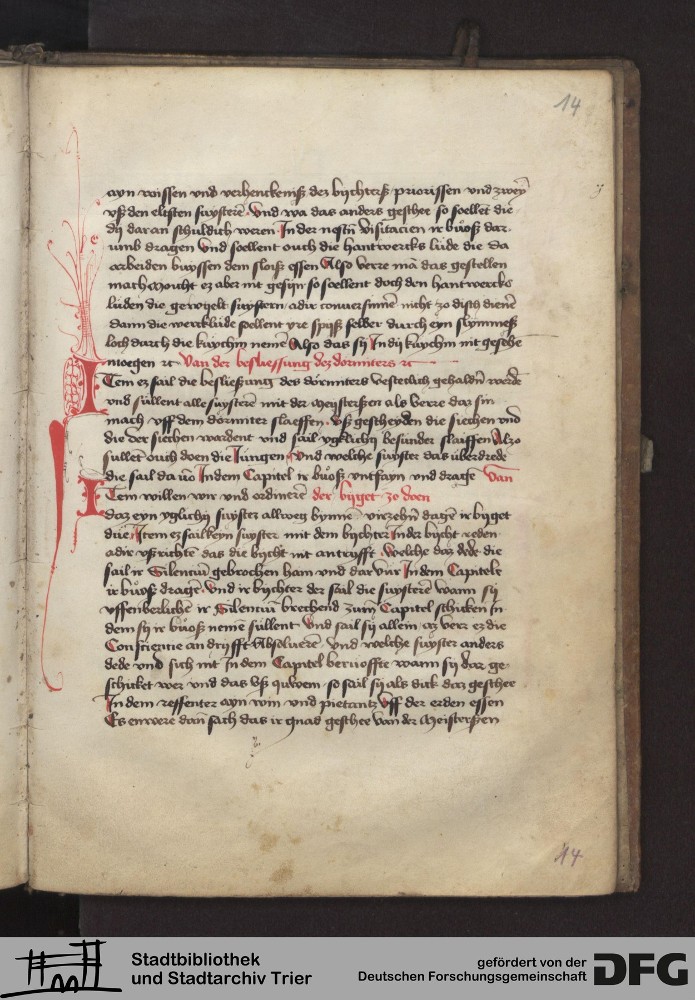 14
ayn wissen und verhenckeniß dez bychterß priorissen und zwey
vß den eltsten suystere Vnd wa das anders geschee so soellet die
dy daran schuldich weren In der nestn visitacien ir buͦß dar
umb dragen Vnd soellent ouch die hantwercks lude die da
arbeiden buyssen dem sloiß essen Also verre mā das gestellen
mach Moicht ez aber nit gesyn so soellent doch den hantwercks
luden die gewyelt suystern adir conuersinnē nicht zo disch dienē
dann die wercklude soellent yre spyß selber durch eyn slymmeß
loch durch die kuychin nemē Also das sy In dy kuychin nit geschē
moegen ⁊c Van der besliessung dez dormters ⁊c
Item ez sail die besließung des dormters vestetlich gehaldn̄ werdē
vnd sullent alle suysterē mit der meysterßen als verre daz sin
mach vff dem dormter slaeffen vß gescheyden die siechen vnd
die der siechen wardent vnd sail yglichy besunder slaiffen Also
sullet ouch doen die Jungen Vnd welche suyster das uberdrede
die sail da uō Indem Capitel ir buͦß vntfayn und dragē Van
Item willen wir und ordinerē der byget zo doen
daz eyn yglichy suyster allweg bynnē vierzehn̄ dagē ir byget
due Item ez sail keyn suyster mit dem bychter In der bycht reden
adir vßrichtē das die bycht nit antryfft Welche daz dede die
sail ir Silenciū gebrochen hain vnd dar vur Indem Capitele
ir buͦß dragē Vnd ir bychter der sail die suysterē wann sy
vffenberlichē ir Silenciū brechend zum Capitel schicken in
dem sy ir buͦß nemē sullent Vnd sail sy allein az verr ez die
Consciencie andryfft Absoluerē Vnd welche suyster anders
dede vnd sich nit In dem Capitel beruoffte wann sy dar ge
schicket wer vnd das vß quoem so sail sy als dick daz geschee
In dem reffenter ayn win vnd pietantz vff der erden essen
Es enwere dan̄ sach das ir gnad geschee van der Meisterßen
14
Stadtbibliothek
und Stadtarchiv Trier
gefördert von der
Deutschen Forschungsgemeinschaft
DFG